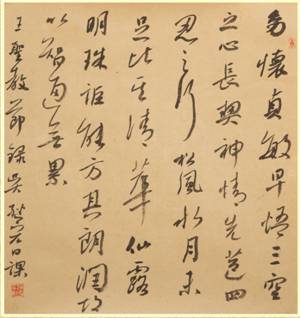 幼懷貞敏早悟三空
之心長契神情先苞四
忍之行松風水月未
足比其清華仙露
明珠詎能方其朗潤故
以智通無累
王聖教節錄吳日課